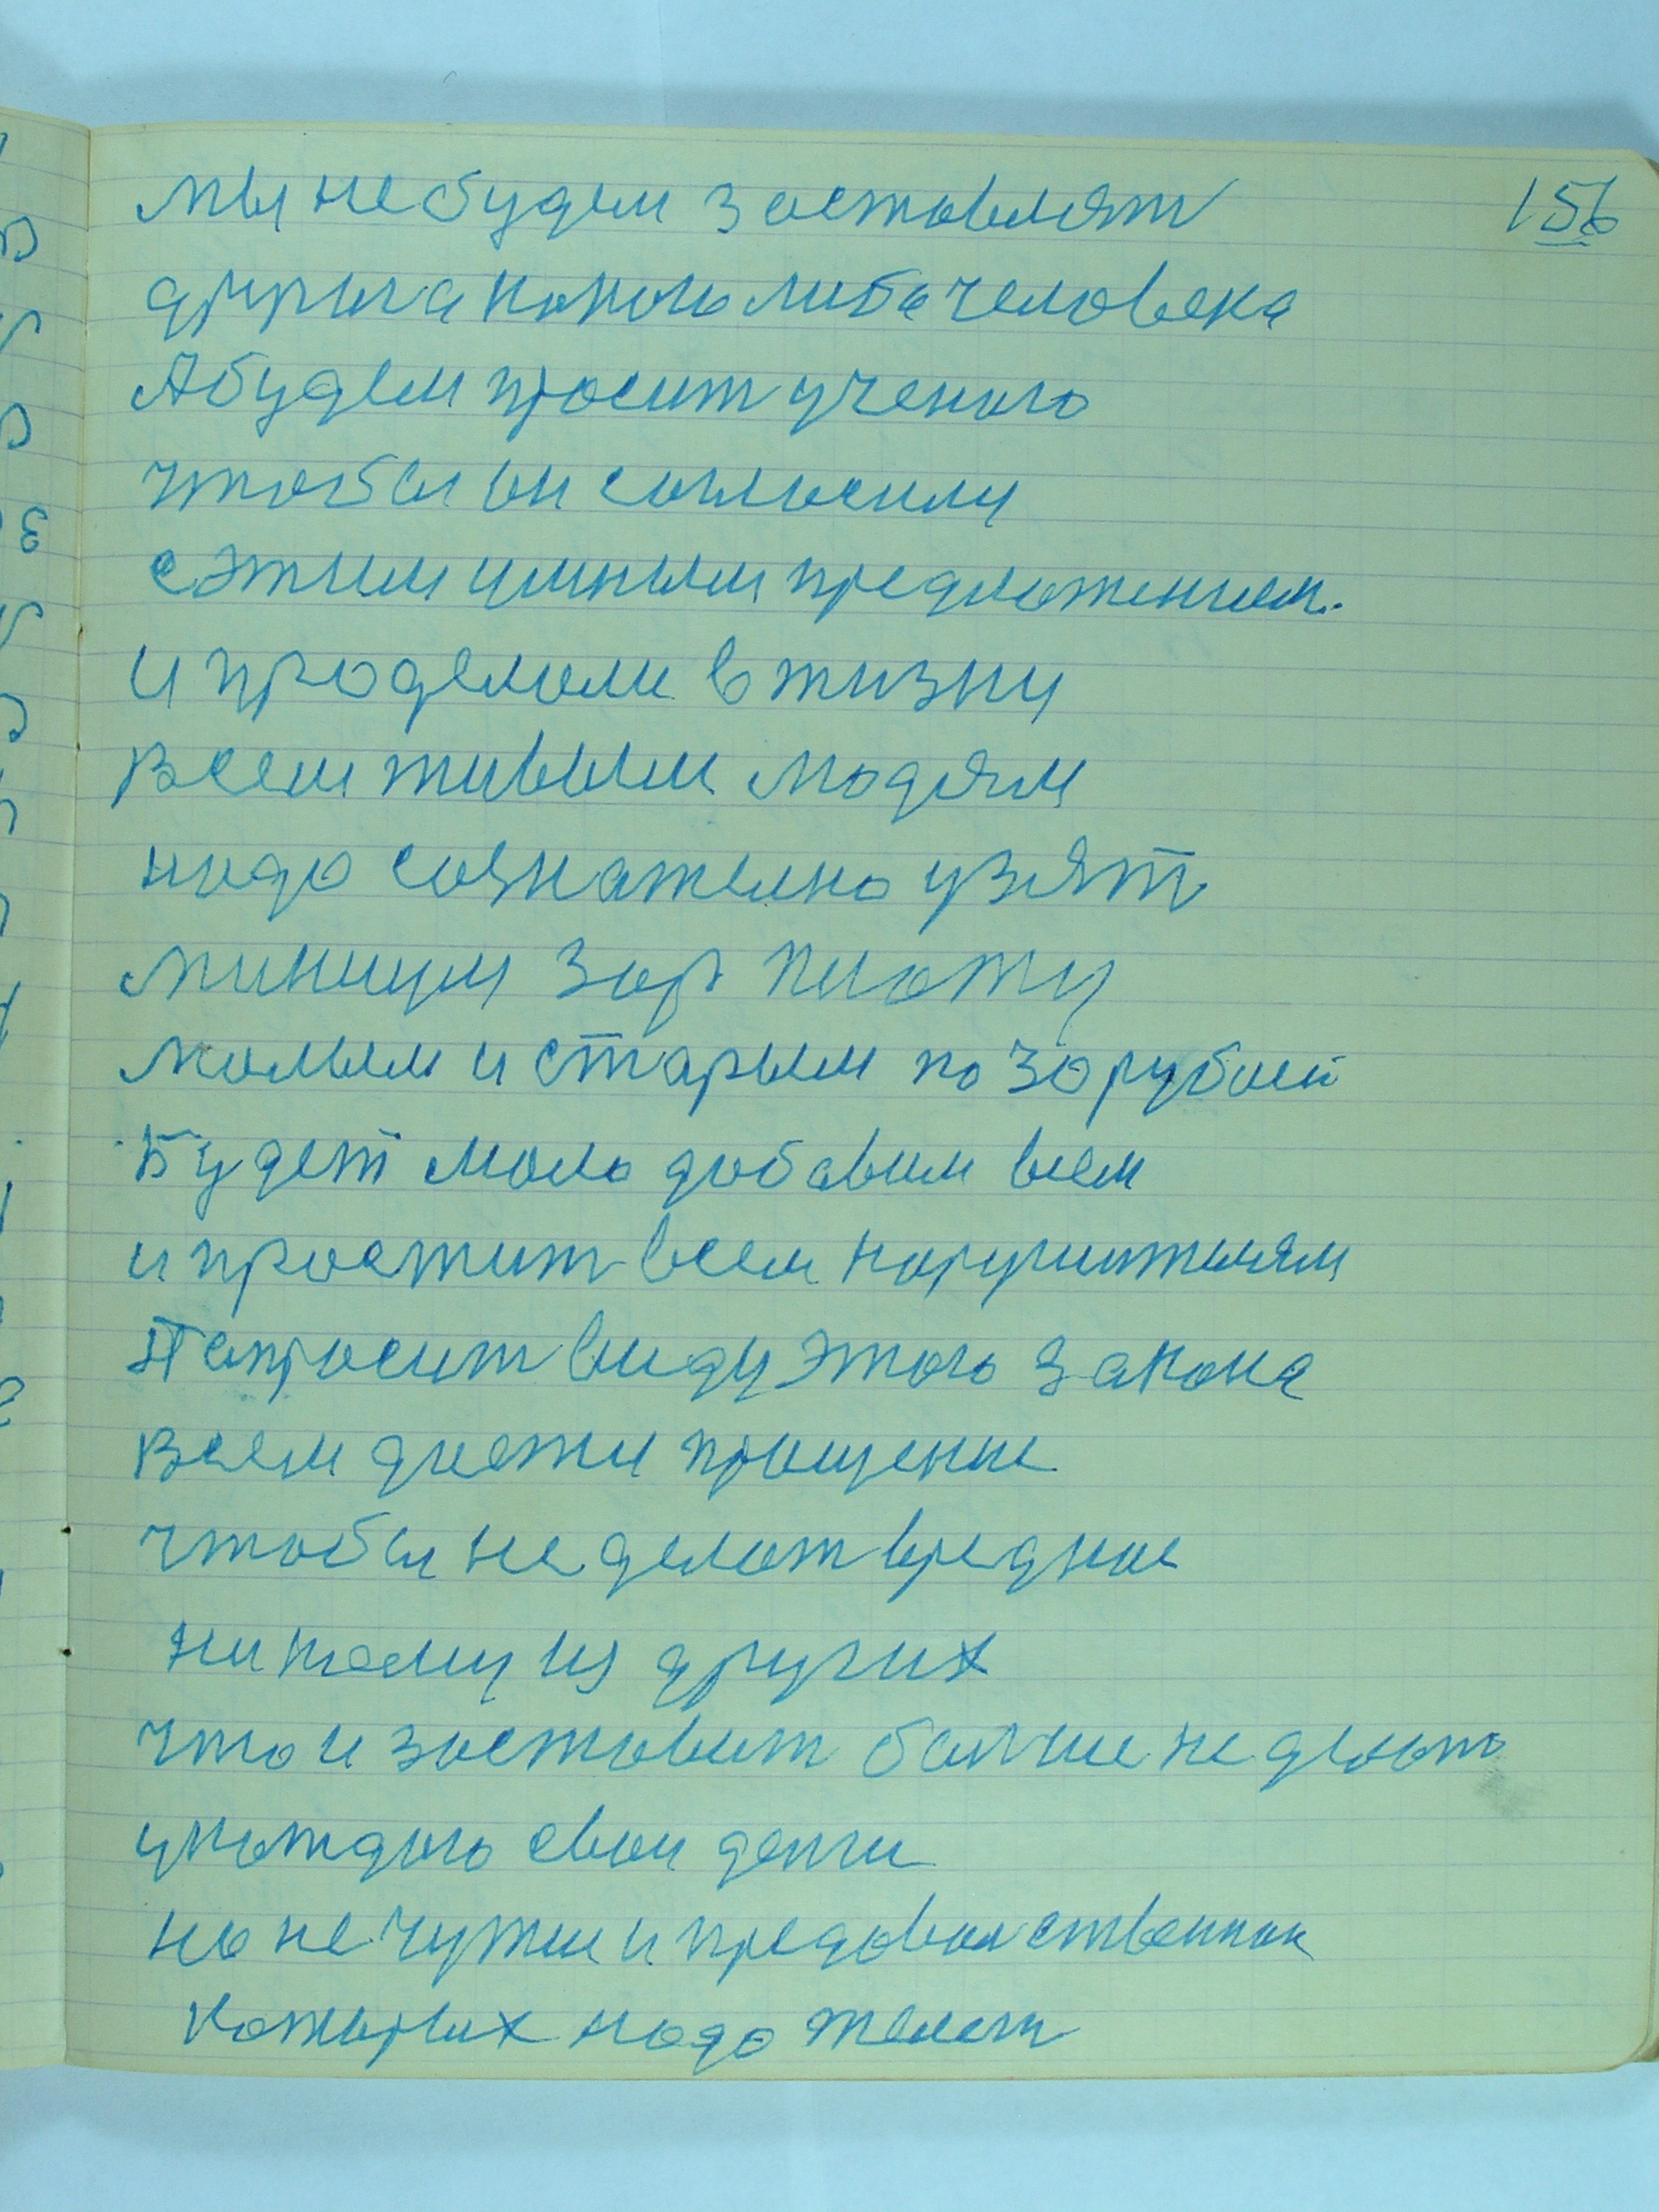 156
мы не будем заставлят
другога когого либа человека
А будем просит ученого
чтобы он согласилц
с этим умным предложением.
и проделали в жизни
Всем живым людям
надо сознателно узят
миницум зар плоту
малым и старым по 30 рублей
Будет мало добавим всем
и простит всем нарушителям
Попросит ввиду этого закона
Всем дпети прощение
чтобы не делат вредное
никому из других
что и заставит болше не делат
укаждого свои денги
но не чужие и
которых надо желат